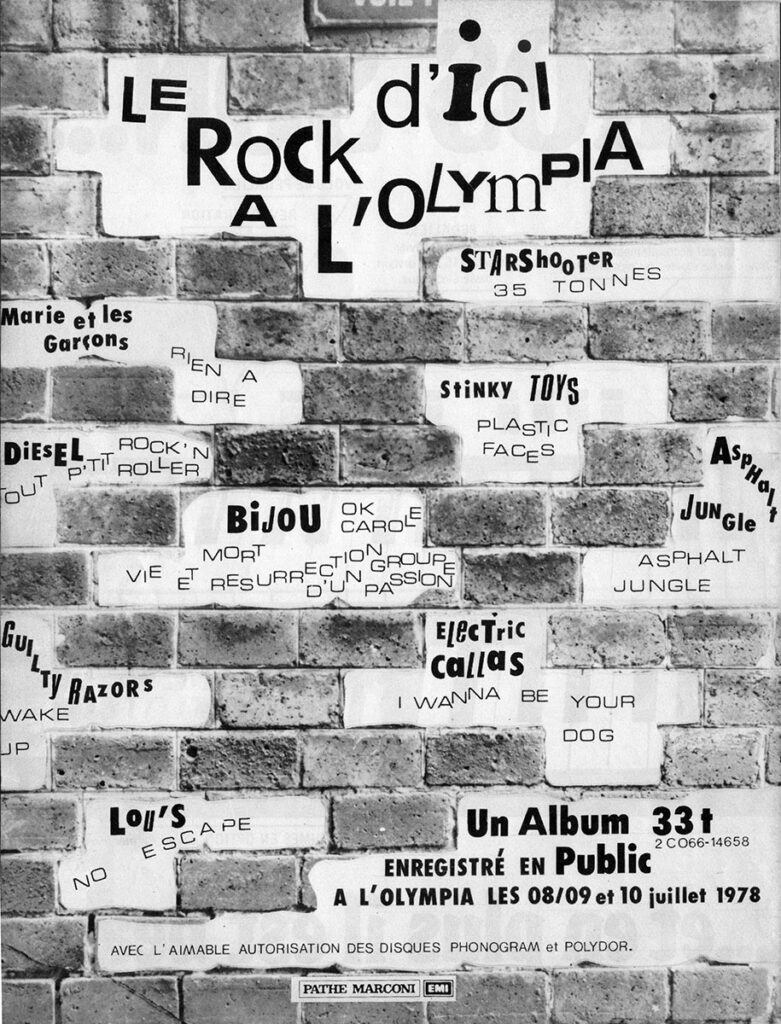 LE
d'ici
Rock
A L'OLYmpIA
STARShooTeR
35 TONNES
Marie et les
Garçons
RIEN A
DIRE
StiNKY TOYS
PLASTIC
FACES
DiESEL
TOUT P'TIT ROCK'N
ROLLER
ASPHalt
JUNGle
ASPHALT
JUNGLE
BiJOU OK
CAROLE
VIE ET MORT
ET RESURRECTION
D'UN GROUPE
PASSION
GUILTY RAZORS
WAKE
UP
ElecTric
CallaS
I WANNA BE YOUR
DOG
LoU'S
NO ESCAPE
Un Album 33t
2 C066-14658
ENREGISTRÉ EN Public
A L'OLYMPIA LES 08/09 et 10 juillet 1978
AVEC L'AIMABLE AUTORISATION DES DISQUES PHONOGRAM et POLYDOR.
PATHE MARCONI EMI